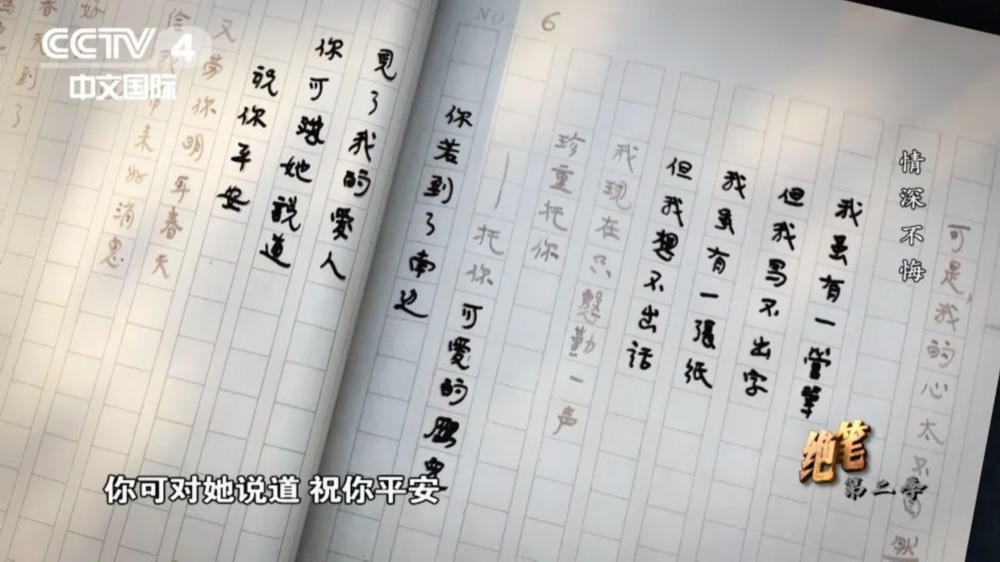 CCTV 4
中文国际
NO. 6
情深不悔
可是,我的心太不
我虽有一管筆
但我写不出字
我虽有一張纸
但我想不出话
我现在只慇勤一声
珍重托你
——托你 可愛的鵬鳥
你若到了南边
見了我的愛人
你可對她説道
祝你平安
又劳你明年春天
来好消息
绝笔
第二季
你可对她说道 祝你平安